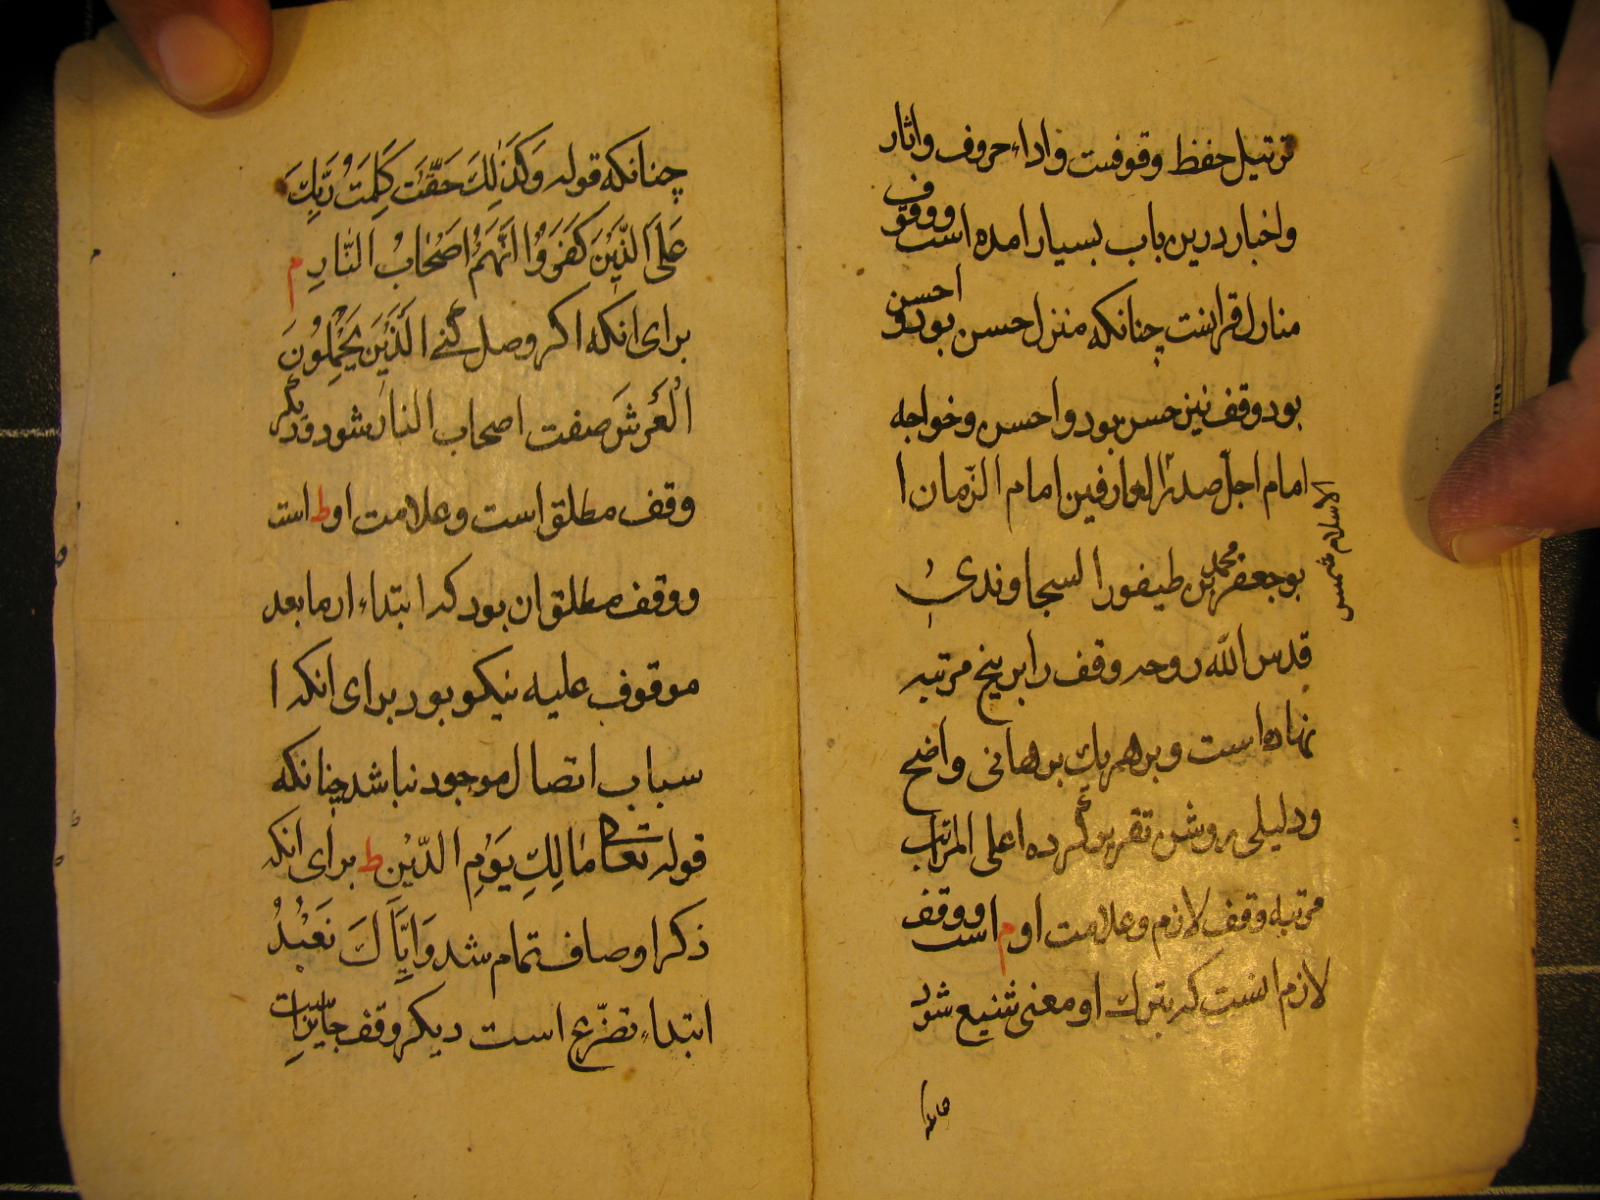 ترتیل حفظ وقوفست واداء حروف واثار
واخبار درین باب بسیار امده است ووقوف
منازل قرانست چنانکه منزل حسن بود واحسن
بود وقف نیز حسن بود واحسن وخواجه
امام اجل صدر العارفین امام الزمان ا
الاسلام شمس
بوجعفر محمد بن طیفور السجاوندی
قدس الله روحه وقف را بر پنج مرتبه
نهاده است وبر هر یك برهانی واضح
ودلیلی روشن تقریر کرده اعلی المراتب
مرتبه وقف لازم وعلامت او م است ووقف
لازم انست که بترك او معنی شنیع شود
چنانکه
چنانکه قوله وَكَذٰلِكَ حَقَّتْ كَلِمَتُ رَبِّكَ
عَلَى الَّذِينَ كَفَرُوا اَنَّهُمْ اَصْحَابُ النَّارِ م
برای انکه اکر وصل کنے الَّذِينَ يَحْمِلُونَ
الْعَرْشَ صفت اصحاب النار شود ودیکر
وقف مطلق است وعلامت او ط است
ووقف مطلق ان بود که ابتداء از ما بعد
موقوف علیه نیکو بود برای انکه ا
سباب اتصال موجود نباشد چنانکه
قوله تعالى مَالِكِ يَوْمِ الدِّيْنِ ط برای انکه
ذکر اوصاف تمام شد وَاِيَّاكَ نَعْبُدُ
ابتداء تضرّع است دیکر وقف جایز است